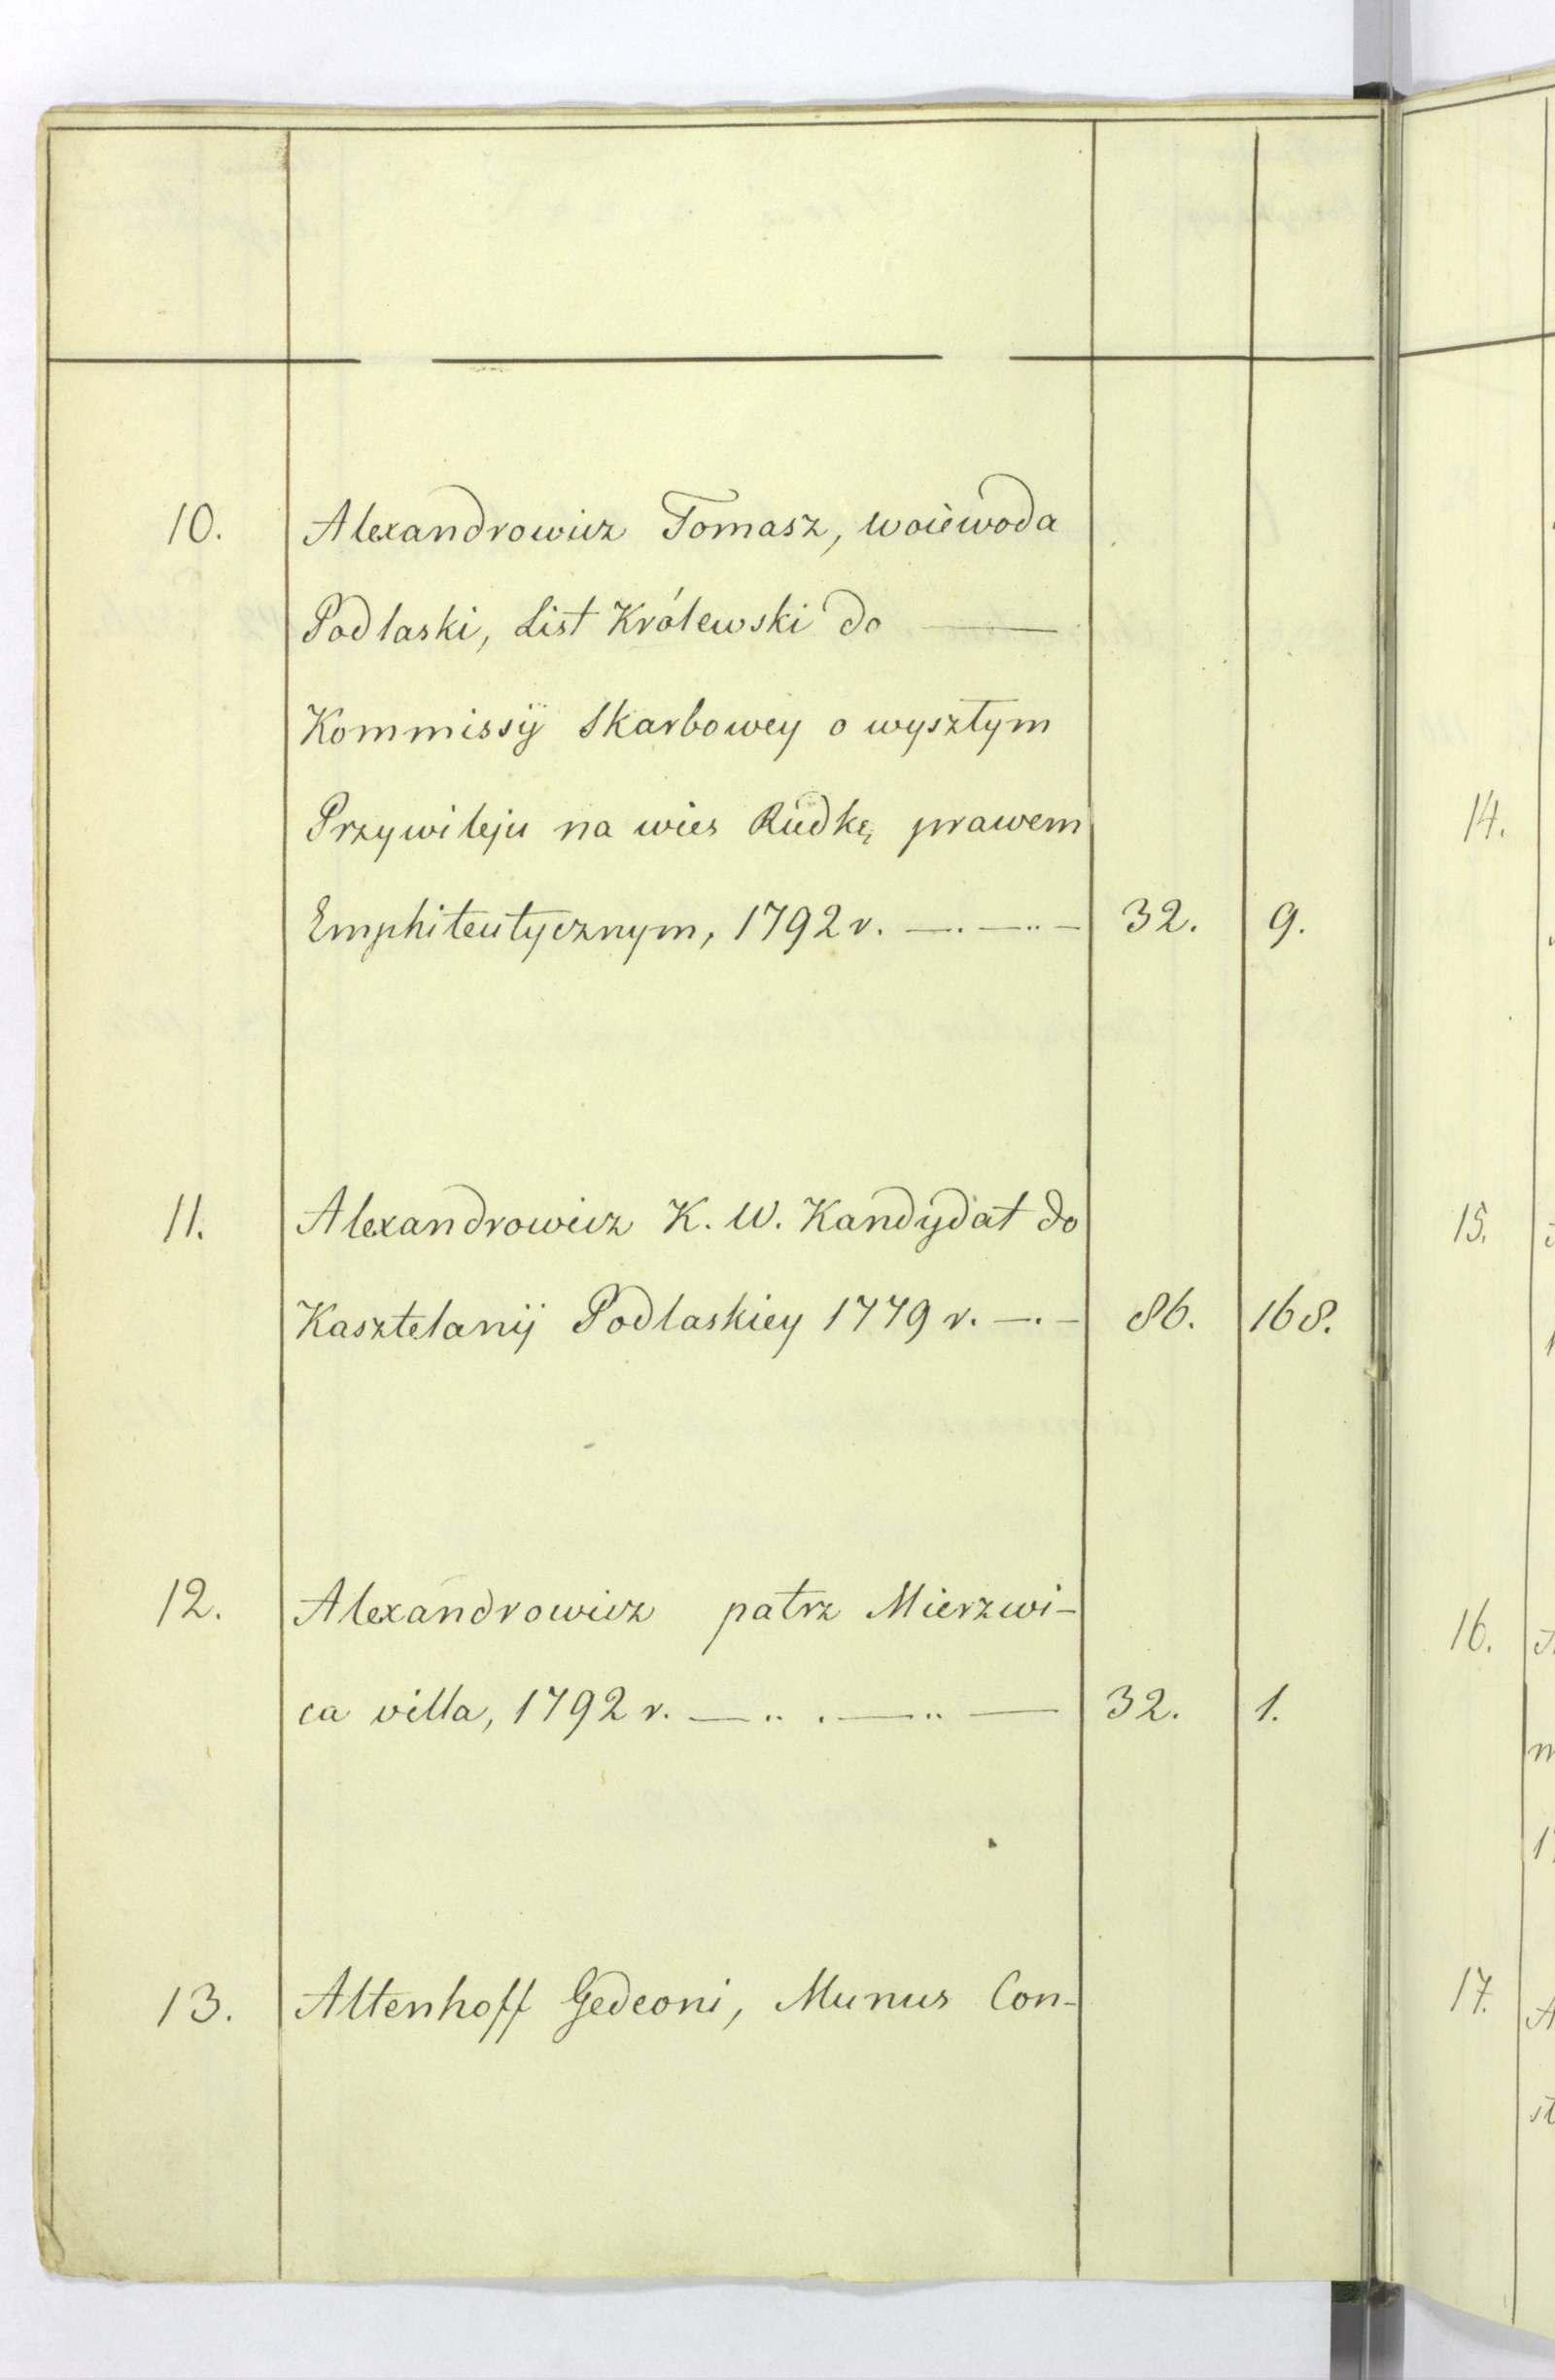 10. Alexandrowicz Tomasz, woiewoda
Podlaski, List Królewski do —
Kommissÿ Skarbowey o wyszłym
Przywileju na wies Rudkę, prawem
Emphiteutycznym, 1792 r. —. —.. — 32. 9.
11. Alexandrowicz K. W. Kandydat do
Kasztelanÿ Podlaskiey 1779 r. —. — 86. 168.
12. Alexandrowicz patrz Mierzwi-
ca villa, 1792 r. —.. . —.. — 32. 1.
13. Altenhoff Gedeoni, Munus Con-
14.
15.
16.
17.